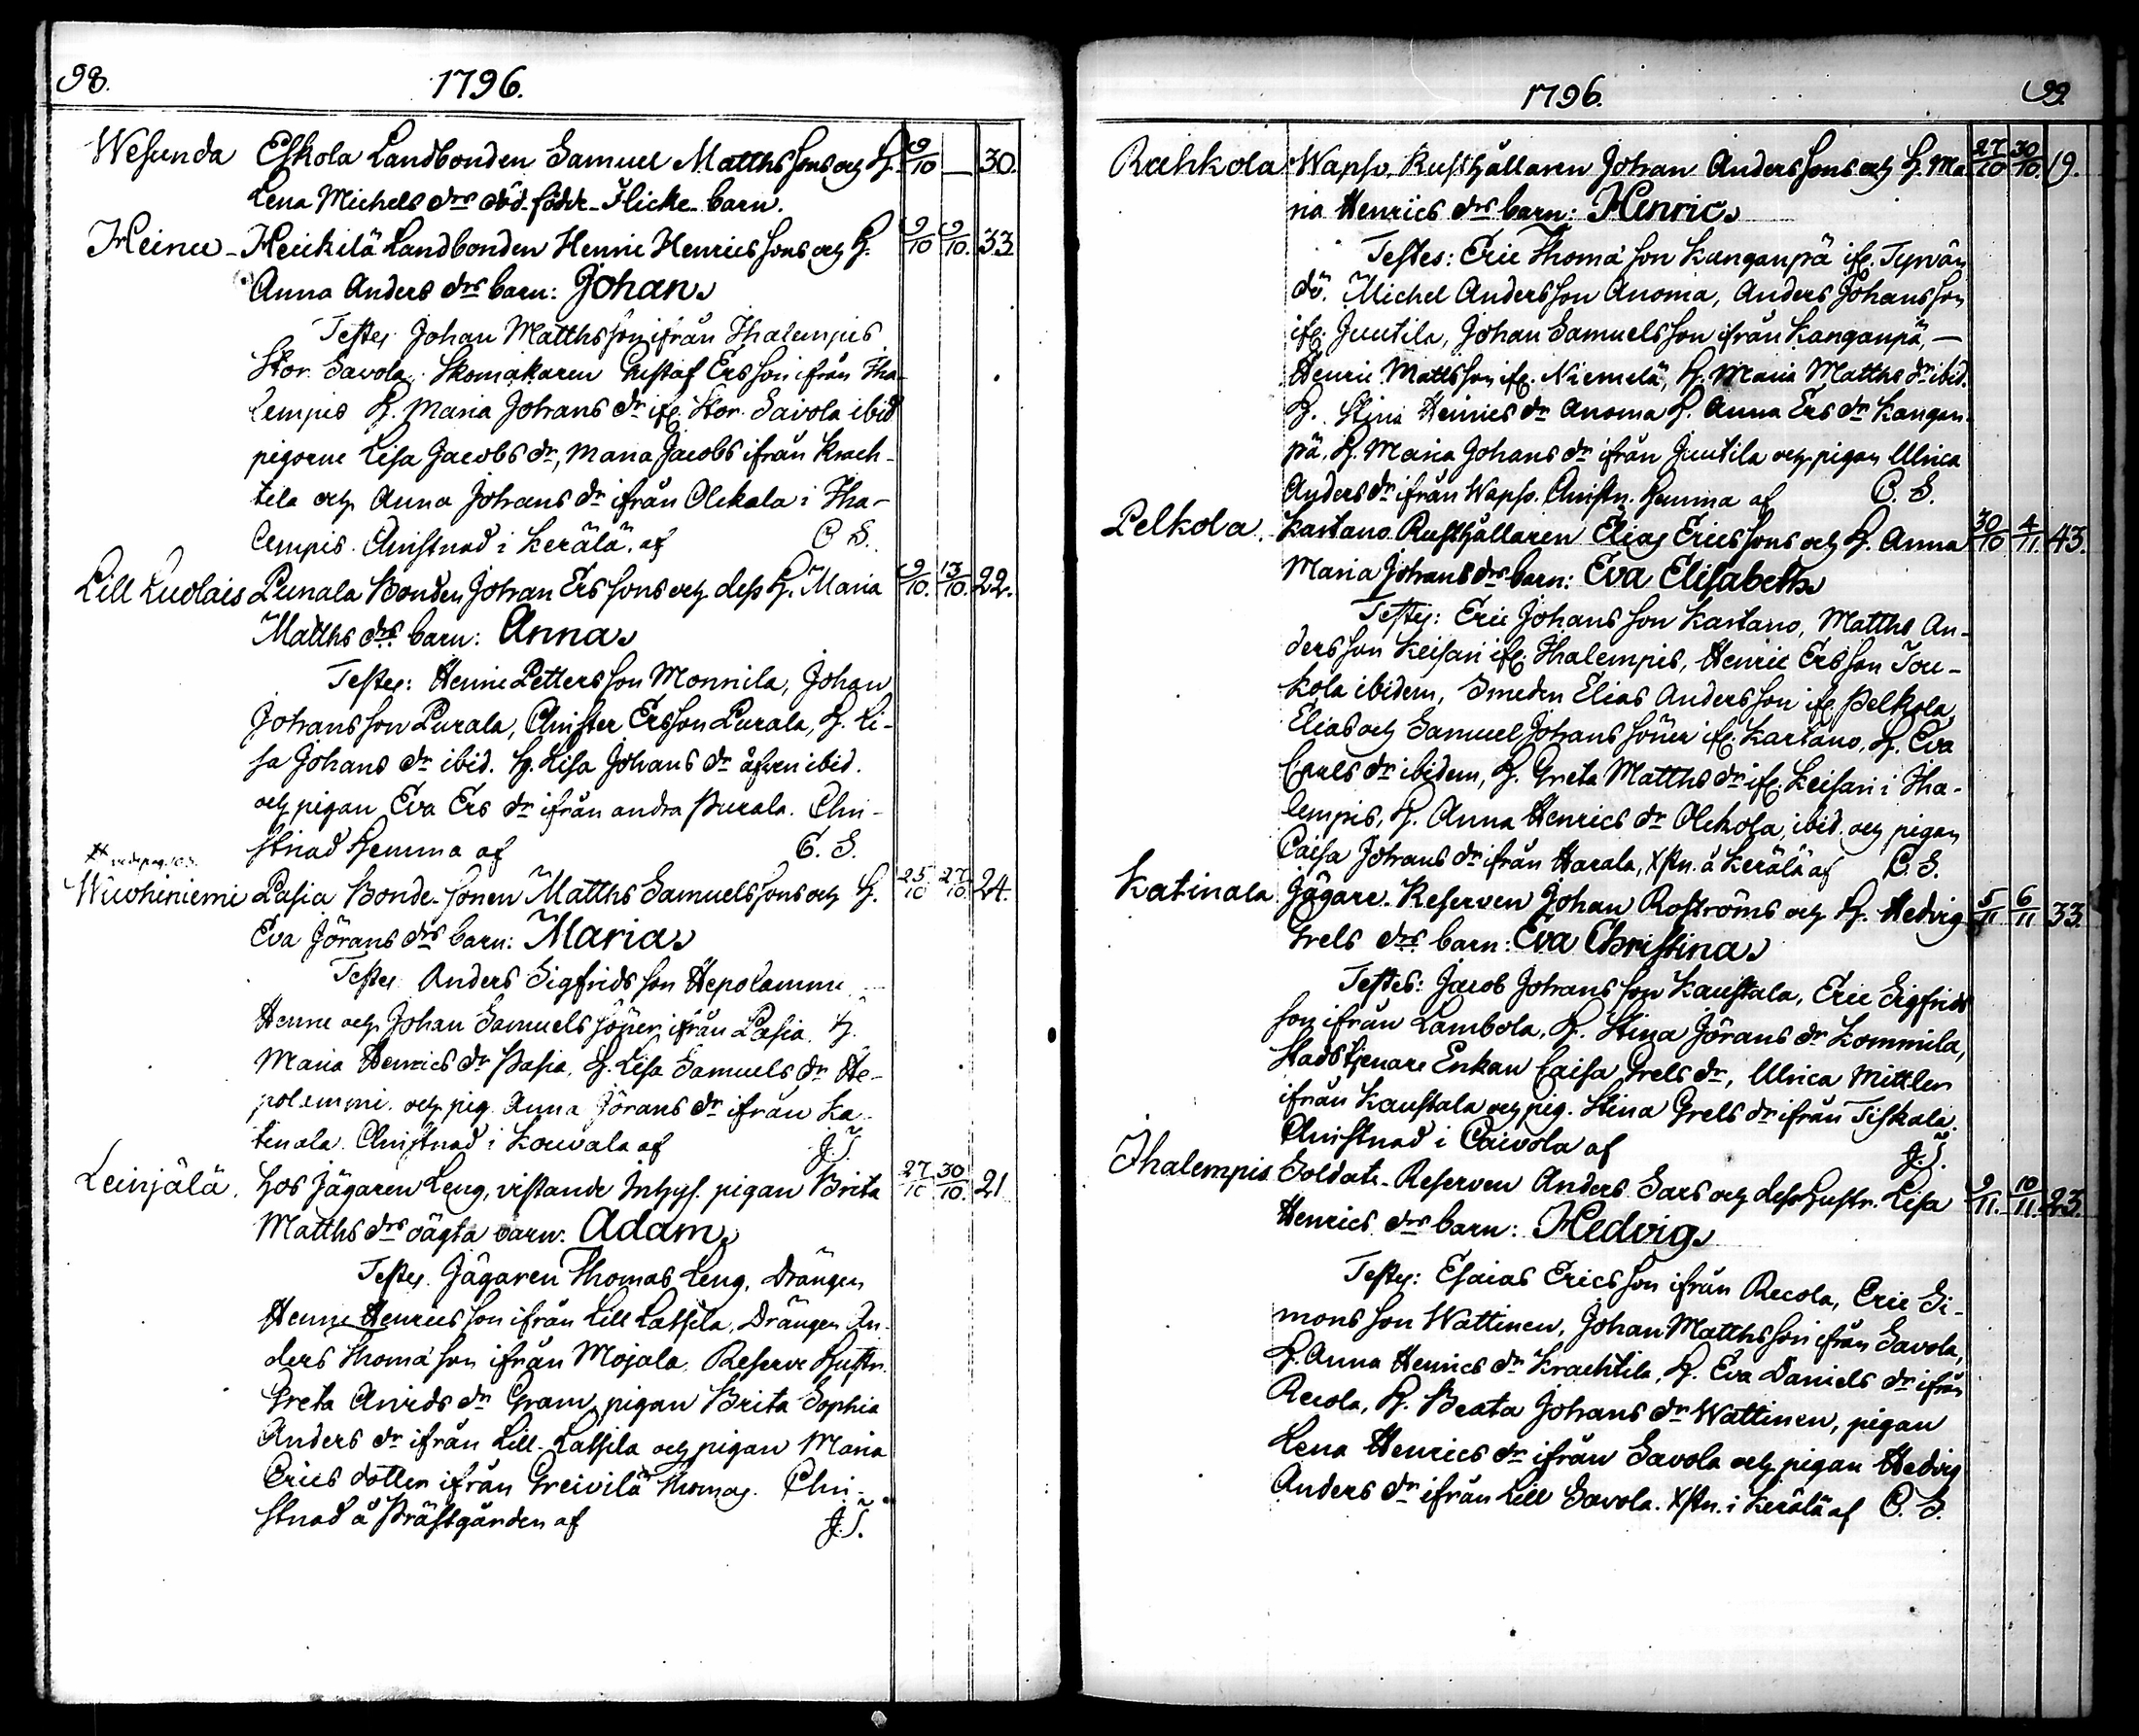 98. 1796.
Wesunda Eskola Landbonden Samuel Matths sons och H. 9/10 — 30.
Lena Michels drs död-född-Flicke-barn.
Heinu - Heickilä Landbonden Henric Henrics sons och H. 9/10 9/10. 33
Anna Anders drs barn: Johan.
Testes Johan Matthsson ifrån Thalempis
Stor Savola, Skomakaren Gustaf Ersson ifrån Tha-
lempis H. Maria Johans dr ifr. Stor Savola ibid
pigorne Lisa Jacobs dr, Maria Jacobs ifrån Krach-
tila och Anna Johans dr ifrån Olckala i Tha-
lempis. Christnad i Kerälä af C S.
Lill Luolais Punala Bonden Johan Ers sons och dess H. Maria 9/10. 13/10. 22.
Matths drs barn: Anna.
Testes: Henric Petters son Monnila, Johan
Johans son Purala, Christer Ersson Purala, H. Li-
sa Johans dr ibid. H. Lisa Johans dr äfven ibid.
och pigan Eva Ers dr ifrån andra Purala. Chri-
stnad hemma af C. S.
vide pag. 103.
Wuohiniemi Pasia Bonde-sonen Matths Samuels sons och H. 25/10 27/10 24.
Eva Jörans drs barn: Maria.
Testes Anders Sigfrids son Hepolammi
Henric och Johan Samuels söner ifrån Pasia, H.
Maria Henrics dr Pasia, H. Lisa Samuels dr He-
polemmi. och pig. Anna Jörans dr ifrån Ka-
tinala. Christnad i Kouvala af J. T.
Leinjälä. hos Jägaren Leng, vistande Inhys. pigan Brita 27/10 30/10. 21
Matths drs oägta barn: Adam.
Testes. Jägaren Thomas Leng, Drängen
Henric Henrics son ifrån Lill Lassila, Drängen An-
ders Thomæ son ifrån Mojala. Reserve Hustn.
Greta Arvids dr Gram, pigan Brita Sophia
Anders dr ifrån Lill-Lassila och pigan Maria
Erics dotter ifrån Greivilä Thomas. Chri-
stnad å Prästgården af J. T.
1796. 99.
Rahkola Wapso Rusthållaren Johan Anders sons och H. Ma- 27/10 30/10. 19.
ria Henrics drs barn: Henric.
Testes: Eric Thomæ son Kanganpä ifr. Tyrvän
dö. Michel Andersson Anoma, Anders Johansson
ifr. Juutila, Johan Samuelsson ifrån Kanganpä, —
Henric Mattsson ifr. Niemelä, H. Maria Matths dr ibid.
H. Stina Henrics dr Anoma H. Anna Ers dr Kangan-
pä, H. Maria Johans dr ifrån Juutila och pigan Ulrica
Anders dr ifrån Wapso. Christn. hemma af C. S.
Pelkola. Kartano Rusthållaren Elias Erics sons och H. Anna 30/10 4/11. 43.
Maria Johans drs barn: Eva Elisabeth.
Testes: Eric Johans son Kartano, Matths An-
ders son Keisari ifr. Thalempis, Henric Ersson Tou-
kola ibidem, Smeden Elias Andersson ifr. Pelkola,
Elias och Samuel Johans söner ifr. Kartano, H. Eva
Carls dr ibidem, H. Greta Matths dr ifr. Keisari i Tha-
lempis, H. Anna Henrics dr Olckola ibid. och pigan
Caisa Johans dr ifrån Harala, Xstn. å Kerälä af C. S.
Katinala Jägare-Reserven Johan Roströms och H. Hedvig 5/11 6/11 33.
Grels drs barn: Eva Christina.
Testes: Jacob Johans son Kaustala, Eric Sigfrids
son ifrån Lambola, H. Stina Jörans dr Kommila,
Stadstjenare Enkan Caisa Grels dr, Ulrica Mittler
ifrån Kaustala och pig. Stina Grels dr ifrån Tiskala.
Christnad i Caivola af J. T.
Thalempis Soldats-Reserven Anders Sars och dess hustr. Lisa 9/11. 10/11. 23.
Henrics drs barn: Hedvig.
Testes: Esaias Ericsson ifrån Recola, Eric Si-
mons son Wattinen, Johan Matthsson ifrån Savola,
H. Anna Henrics dr Krachtila, H. Eva Daniels dr ifrån
Recola, H. Beata Johans dr Wattinen, pigan
Lena Henrics dr ifrån Savola och pigan Hedvig
Anders dr ifrån Lill Savola. Xstn. i Kerälä af C. S.